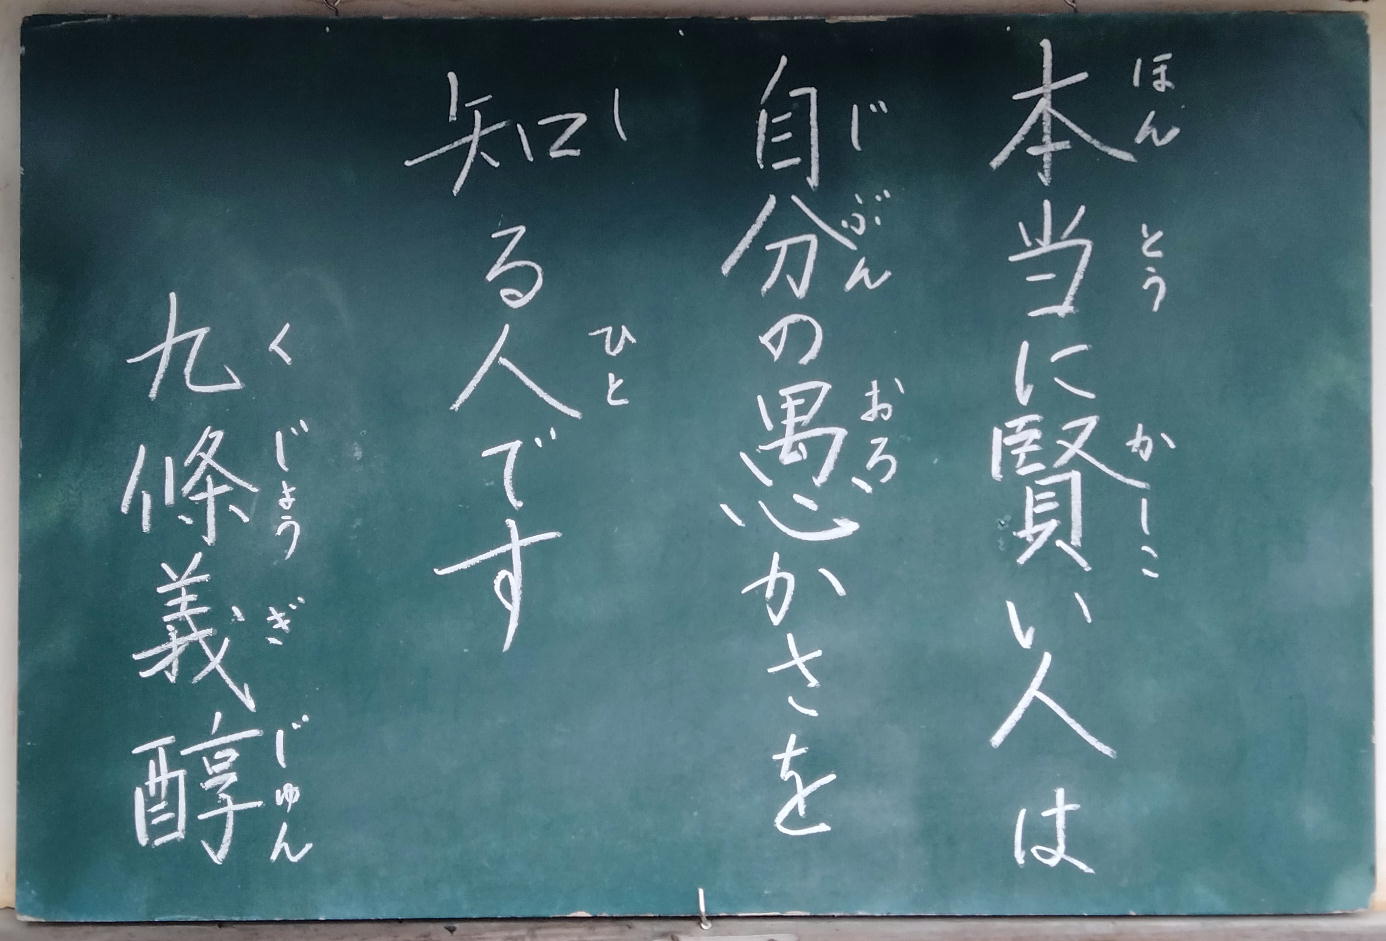 本当に賢い人は
ほんとう かしこ
自分の愚かさを
じぶん おろ
知る人です
し ひと
九條義醇
くじょうぎじゅん